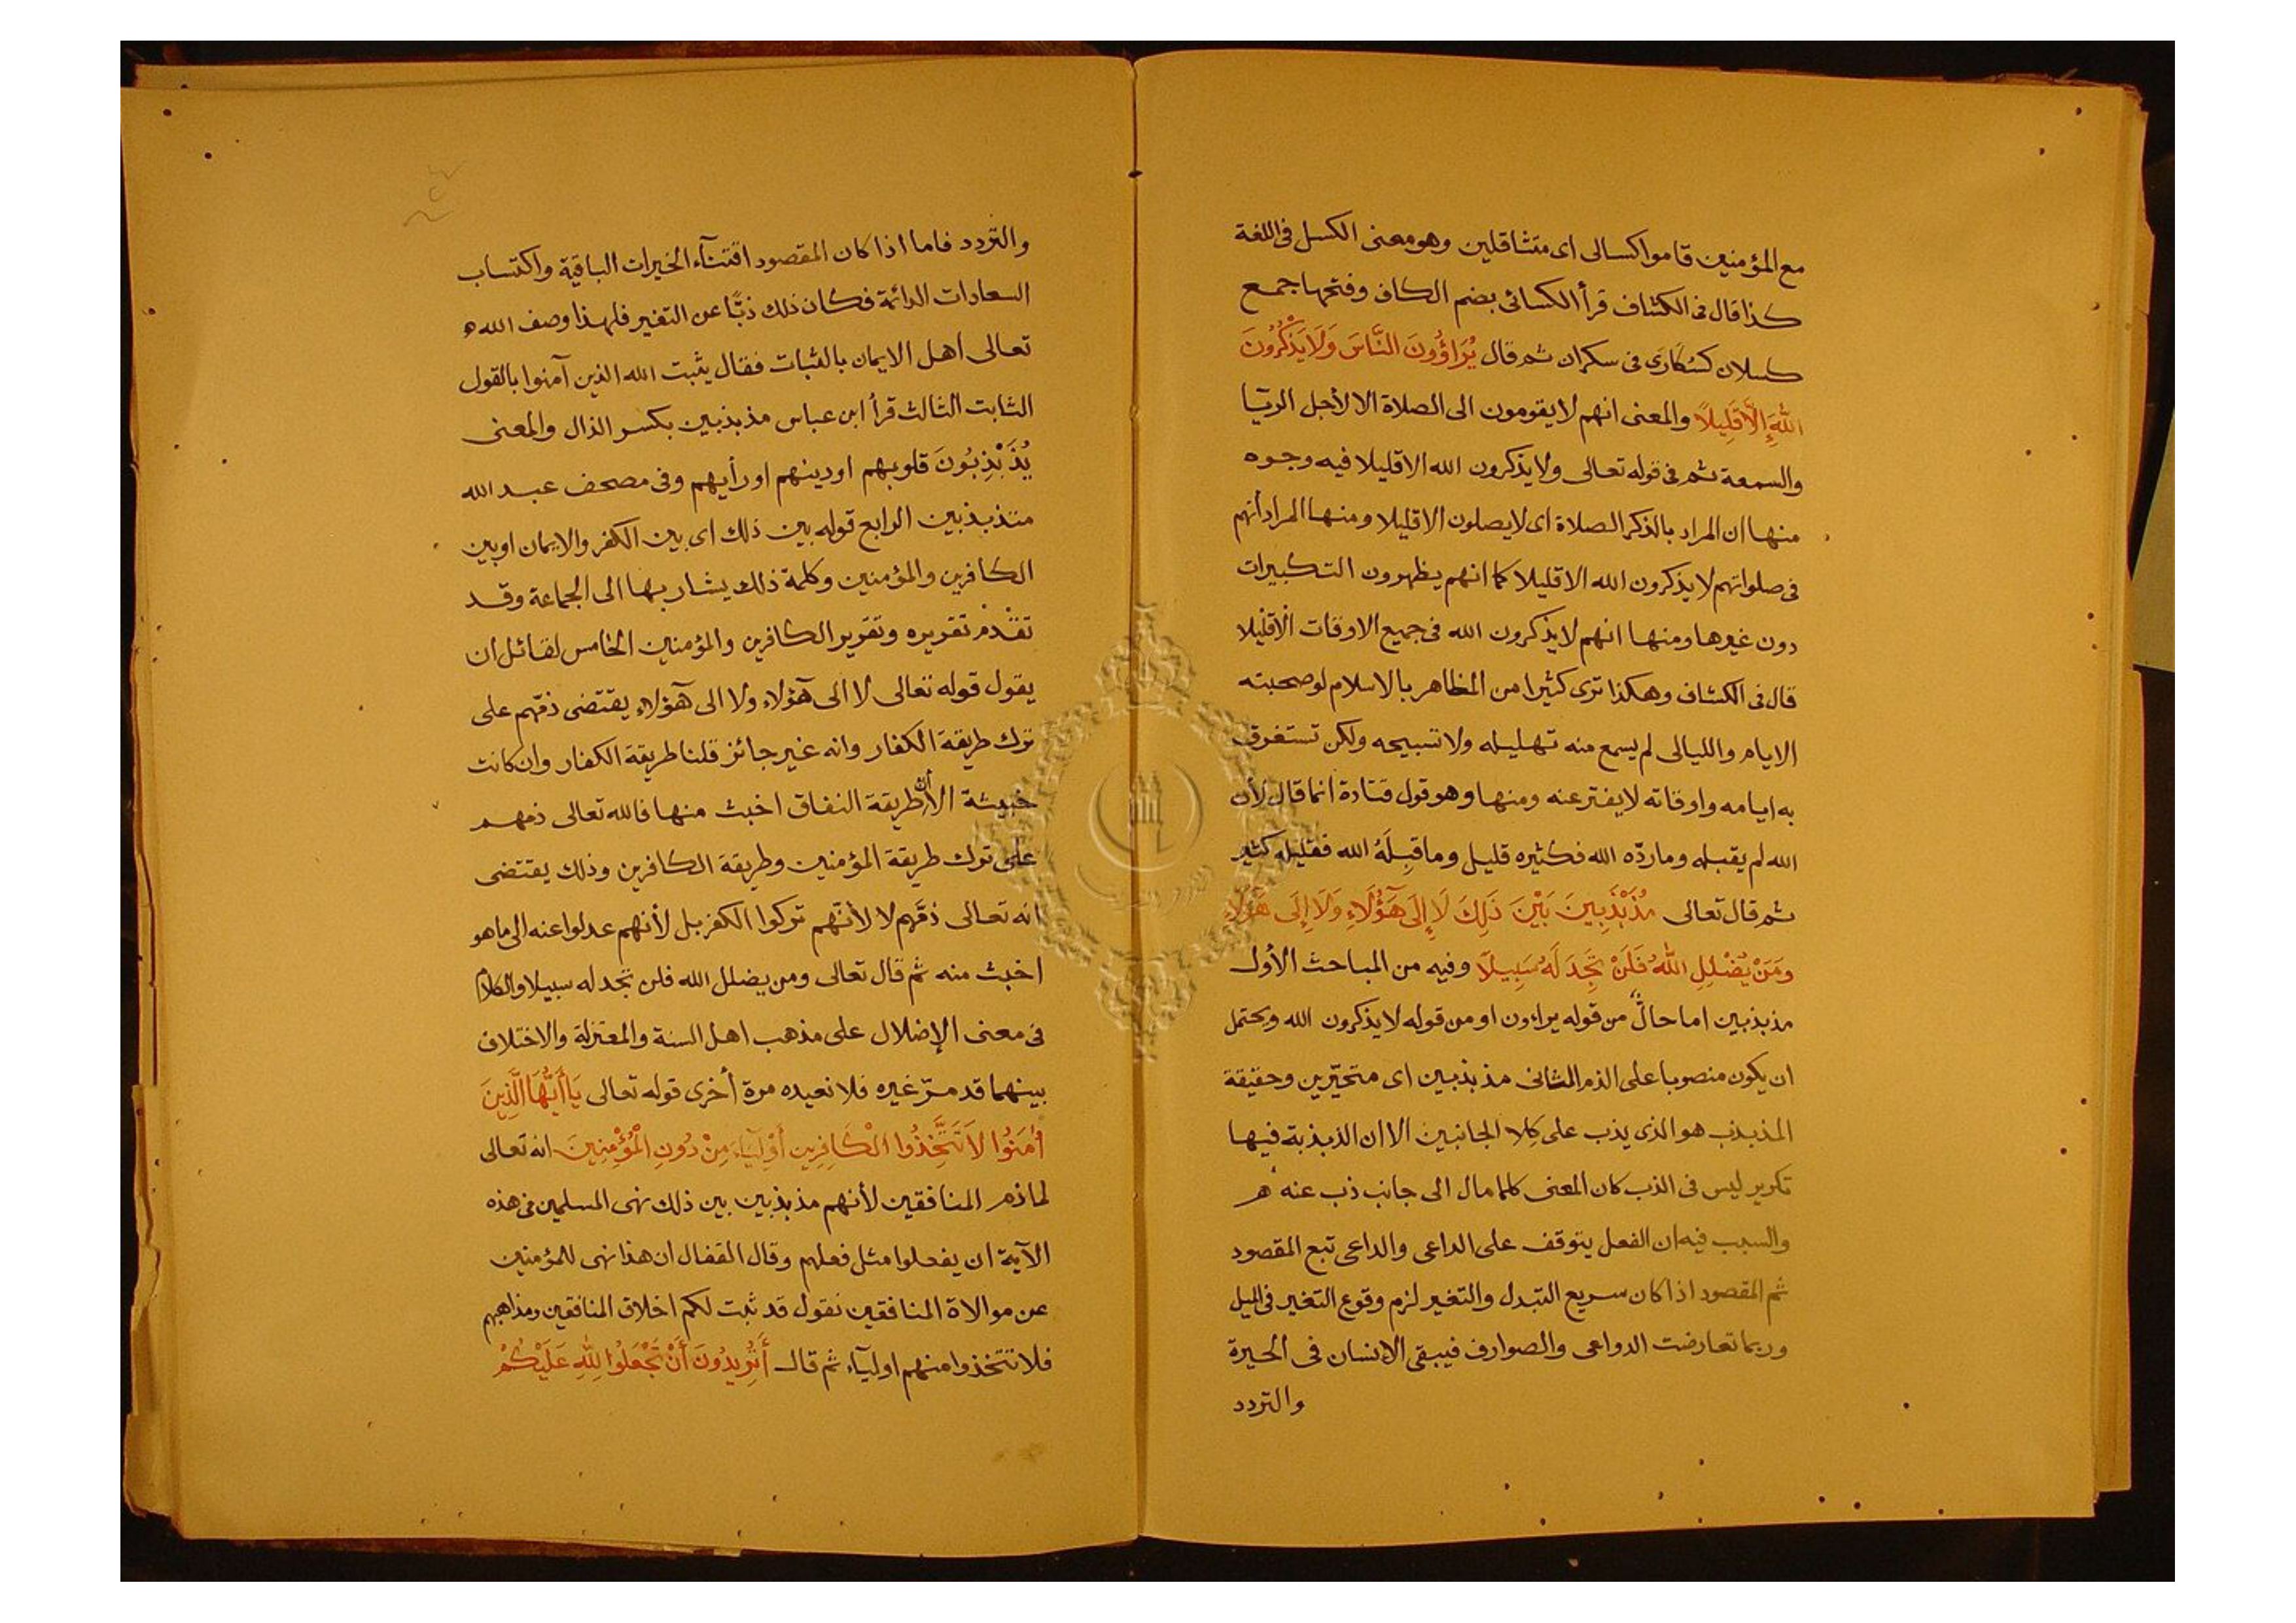 مع المؤمنين قاموا كسالى اى متثاقلين وهو معنى الكسل فى اللغة
كذا قال فى الكشاف قرأ الكسائى بضم الكاف وفتحها جمع
كسلان كسُكَارَى فى سكران ثم قال يُرَاؤُونَ النَّاسَ وَلَا يَذْكُرُونَ
اللَّهَ إِلَّا قَلِيلًا والمعنى انهم لا يقومون الى الصلاة الا لأجل الريّا
والسمعة ثم فى قوله تعالى ولا يذكرون الله الا قليلا فيه وجوه
منها ان المراد بالذكر الصلاة اى لا يصلون الا قليلا ومنها المراد أنهم
فى صلواتهم لا يذكرون الله الا قليلا كما انهم يظهرون التكبيرات
دون غيرها ومنها انهم لا يذكرون الله فى جميع الاوقات الا قليلا
قال فى الكشاف وهكذا ترى كثيرا من المظاهر بالاسلام لو صحبته
الايام والليالى لم يسمع منه تهليله ولا تسبيحه ولكن تستغرق
به ايامه واوقاته لا يفتر عنه ومنها وهو قول قتادة انما قال لأن
الله لم يقبله وما ردّه الله فكثيره قليل وما قبِلَهُ الله فقليله كثير
ثم قال تعالى مُذَبْذَبِينَ بَيْنَ ذَلِكَ لَا إِلَى هَؤُلَاءِ وَلَا إِلَى هَؤُلَاءِ
وَمَنْ يُضْلِلِ اللَّهُ فَلَنْ تَجِدَ لَهُ سَبِيلًا وفيه من المباحث الأول
مذبذبين اما حالٌ من قوله يراءون او من قوله لا يذكرون الله ويحتمل
ان يكون منصوبا على الذم الثانى مذبذبين اى متحيّرين وحقيقة
المذبذب هو الذى يذب على كلا الجانبين الا ان الذبذبة فيها
تكرير ليس فى الذب كان المعنى كلما مال الى جانب ذب عنه
والسبب فيه ان الفعل يتوقف على الداعى والداعى تبع المقصود
ثم المقصود اذا كان سريع التبدل والتغير لزم وقوع التغير فى الميل
وربما تعارضت الدواعى والصوارف فيبقى الانسان فى الحيرة
والتردد
والتردد فاما اذا كان المقصود اقتناء الخيرات الباقية واكتساب
السعادات الدائمة فكان ذلك ذبًّا عن التغير فلهذا وصف الله
تعالى اهل الايمان بالثبات فقال يثبت الله الذين آمنوا بالقول
الثابت الثالث قرأ ابن عباس مذبذبين بكسر الذال والمعنى
يُذَبْذِبُونَ قلوبهم او دينهم او رأيهم وفى مصحف عبد الله
متذبذبين الرابع قوله بين ذلك اى بين الكفر والايمان او بين
الكافرين والمؤمنين وكلمة ذلك يشار بها الى الجماعة وقد
تقدم تقريره وتقرير الكافرين والمؤمنين الخامس لقائل ان
يقول قوله تعالى لا الى هؤلاء ولا الى هؤلاء يقتضى ذمّهم على
ترك طريقة الكفار وانه غير جائز قلنا طريقة الكفار وان كانت
خبيثة الا أن طريقة النفاق اخبث منها فالله تعالى ذمهم
على ترك طريقة المؤمنين وطريقة الكافرين وذلك يقتضى
انه تعالى ذمّهم لا لأنّهم تركوا الكفر بل لأنهم عدلوا عنه الى ما هو
اخبث منه ثم قال تعالى ومن يضلل الله فلن تجد له سبيلا والكلام
فى معنى الإضلال على مذهب اهل السنة والمعتزلة والاختلاف
بينهما قد مرّ غيره فلا نعيده مرة أخرى قوله تعالى يَا أَيُّهَا الَّذِينَ
اٰمَنُوا لَا تَتَّخِذُوا الْكَافِرِين أَوْلِيَاءَ مِنْ دُونِ الْمُؤْمِنِينَ انه تعالى
لما ذم المنافقين لأنهم مذبذبين بين ذلك نهى المسلمين فى هذه
الآية ان يفعلوا مثل فعلهم وقال القفال ان هذا نهى للمؤمنين
عن موالاة المنافقين نقول قد ثبت لكم اخلاق المنافقين ومذاهبهم
فلا تتخذوا منهم اوليآء ثم قال أَتُرِيدُونَ أَنْ تَجْعَلُوا لِلَّهِ عَلَيْكُمْ